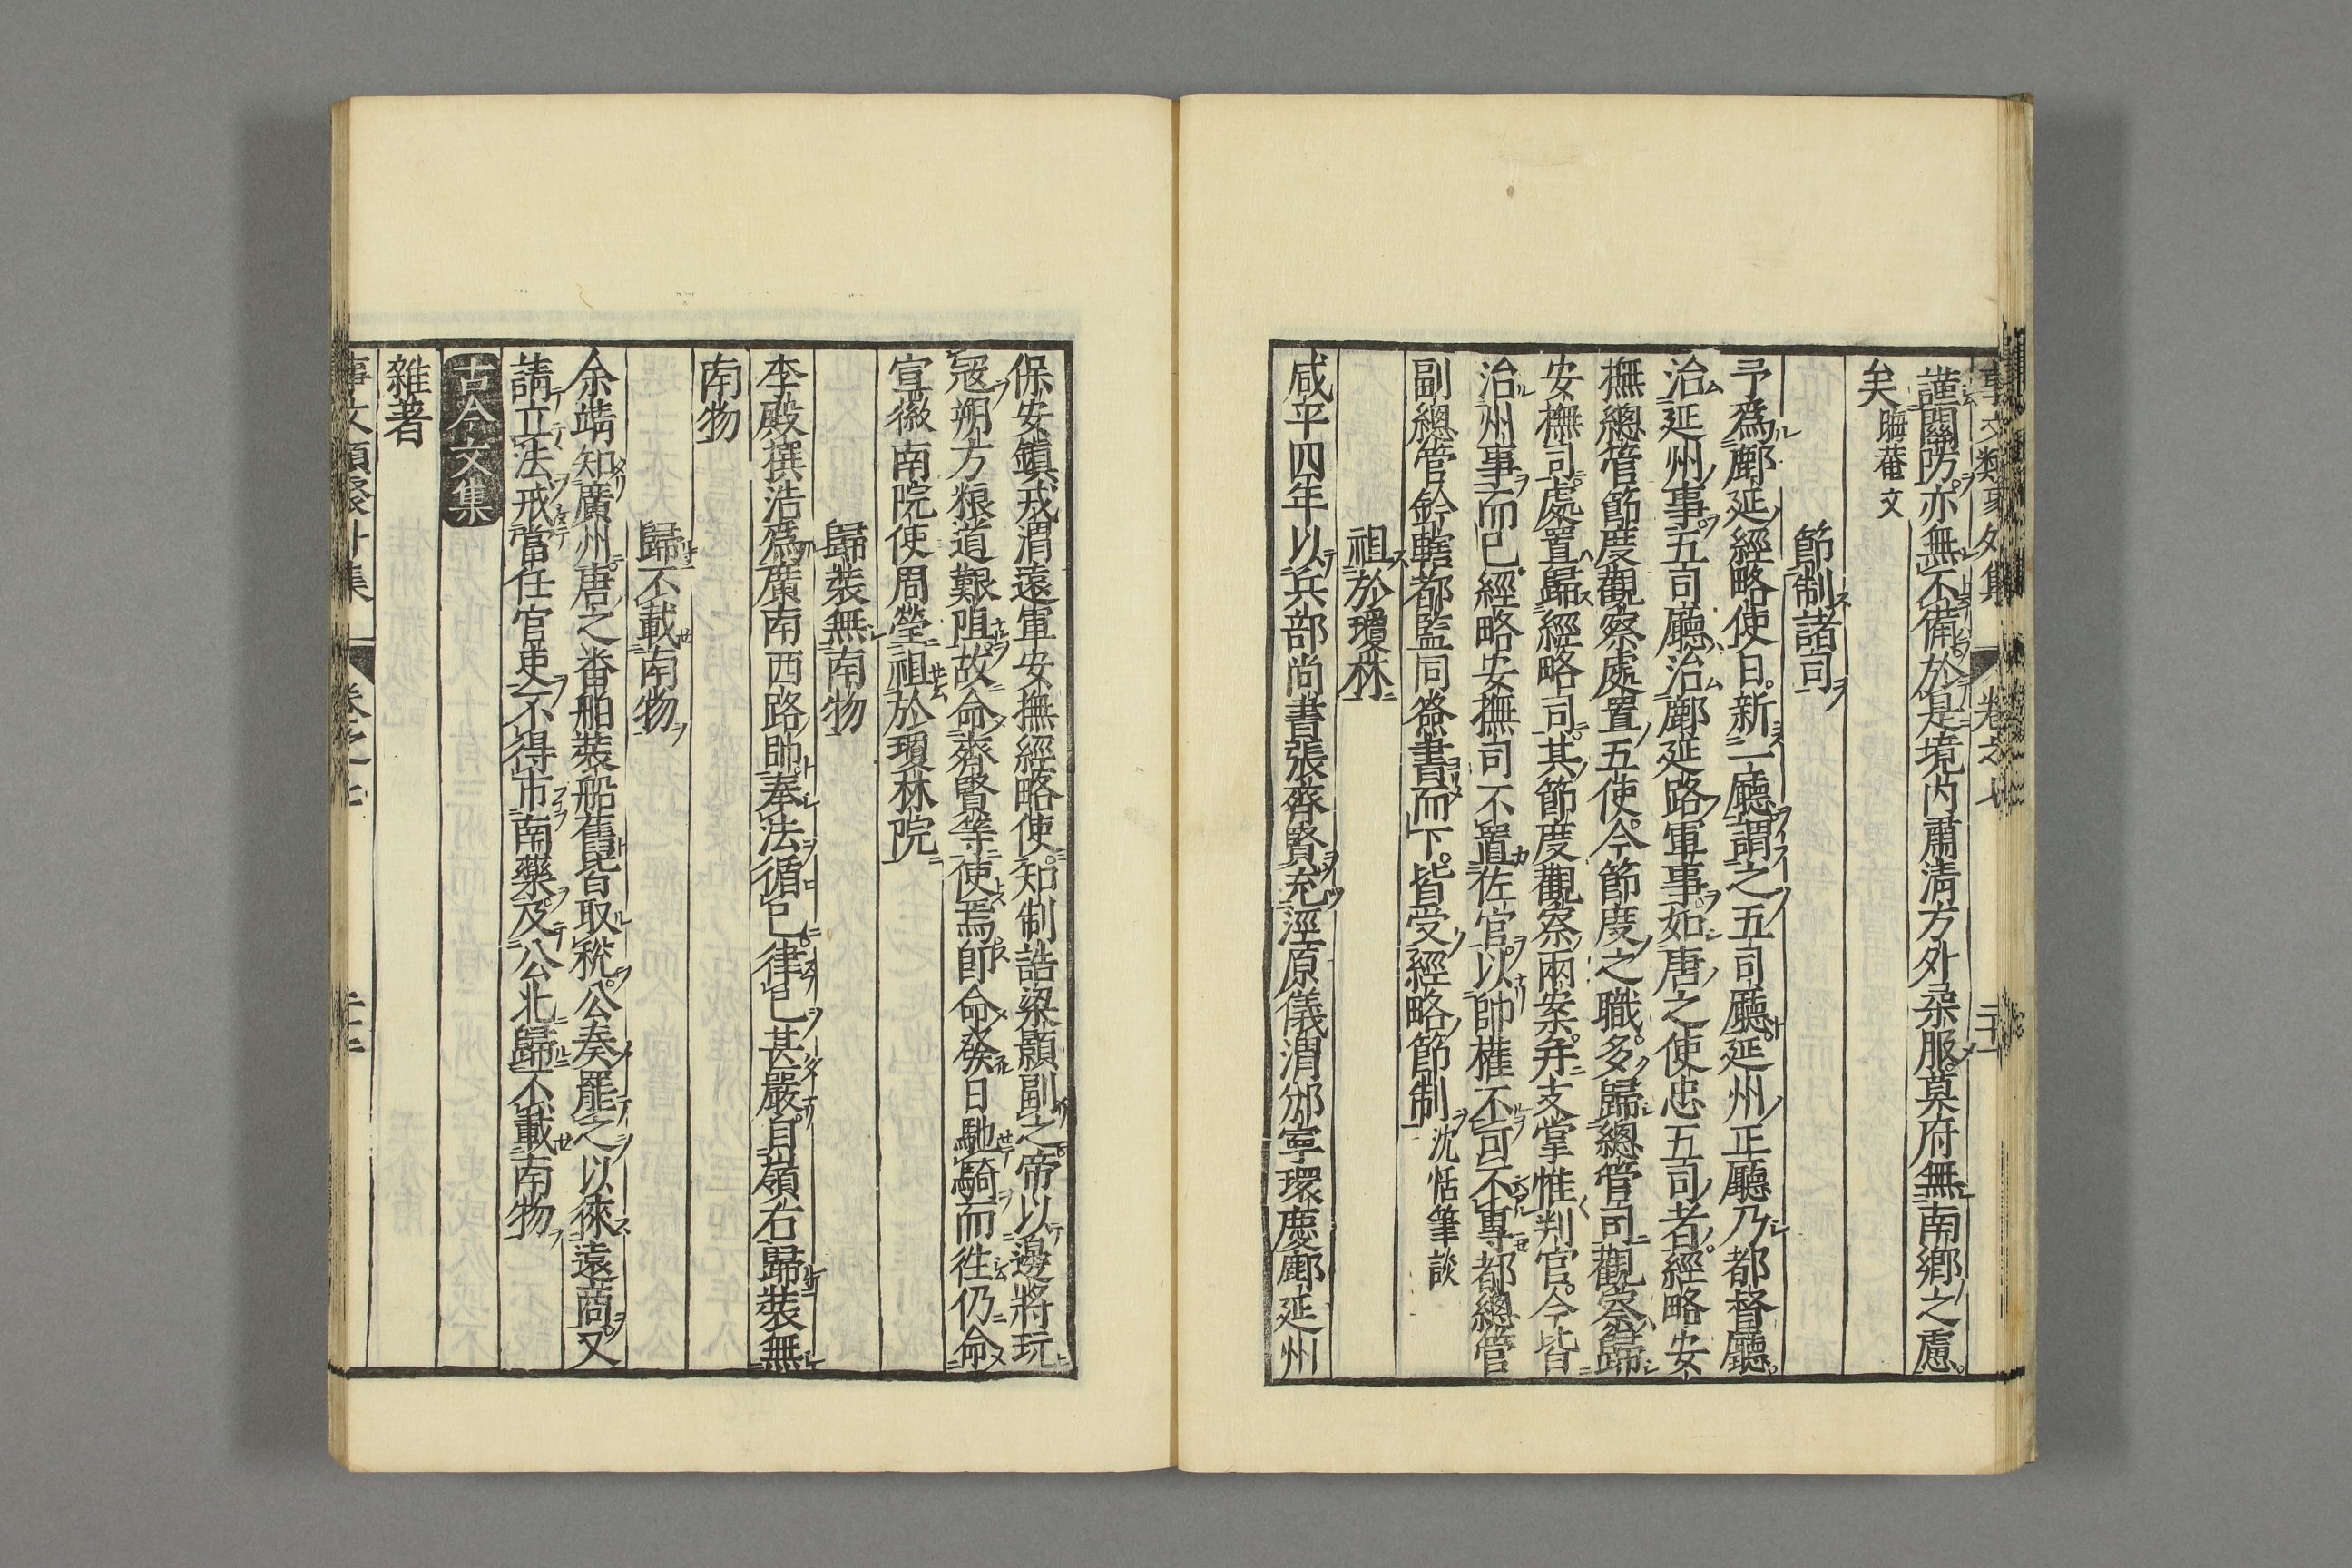 事文類聚外集 卷之七 二十一
謹關防亦無不備於是境内肅清方外彔服莫府無南鄉之慮
矣 晦菴文
節制諸司
予爲鄜延經略使日新一廳謂之五司廳延州正廳乃都督廳
治延州事五司廳治鄜延路軍事如唐之使忠五司者經略安
撫總管節度觀察處置五使今節度之職多歸總管司觀察歸
安撫司處置歸經略司其節度觀察兩案并支掌惟判官今皆
治州事而已經略安撫司不置佐官以帥權不可不專都總管
副總管鈐轄都監同簽書而下皆受經略節制 沈恬筆談
祖於瓊林
咸平四年以兵部尚書張齊賢充涇原儀渭邠寧環慶鄜延州
保安鎮戎渭遠軍安撫經略使知制誥梁顥副之帝以邊將玩
寇朔方粮道艱阻故命齊賢等使焉師命発日馳騎而徃仍命
宣徽南院使周瑩祖於瓊林院
歸裝無南物
李殿撰浩爲廣南西路帥奉法循巳律巳甚嚴自嶺右歸裝無
南物
歸不載南物
余靖知廣州唐之畨舶裝船舊皆取稅公奏罷之以徠遠啇又
請立法戒當任官吏不得市南藥及公北歸不載南物
古今文集
雜著
事文類聚外集 卷之七